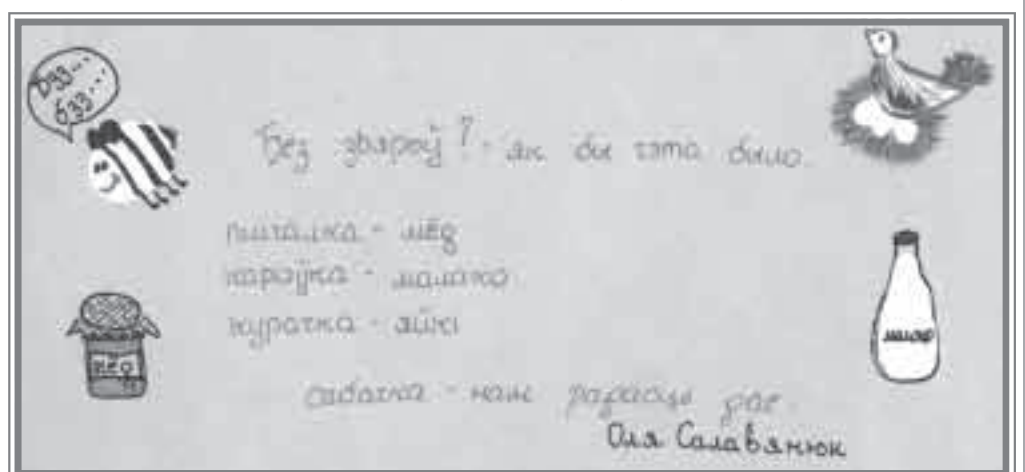 Дзз...
бзз...
Без звяроў? - як бы гэта было
пчолка - мёд
кароўка - малако
курачка - яйкі
сабачка - нам радасць дае.
Оля Салавянюк
мёд